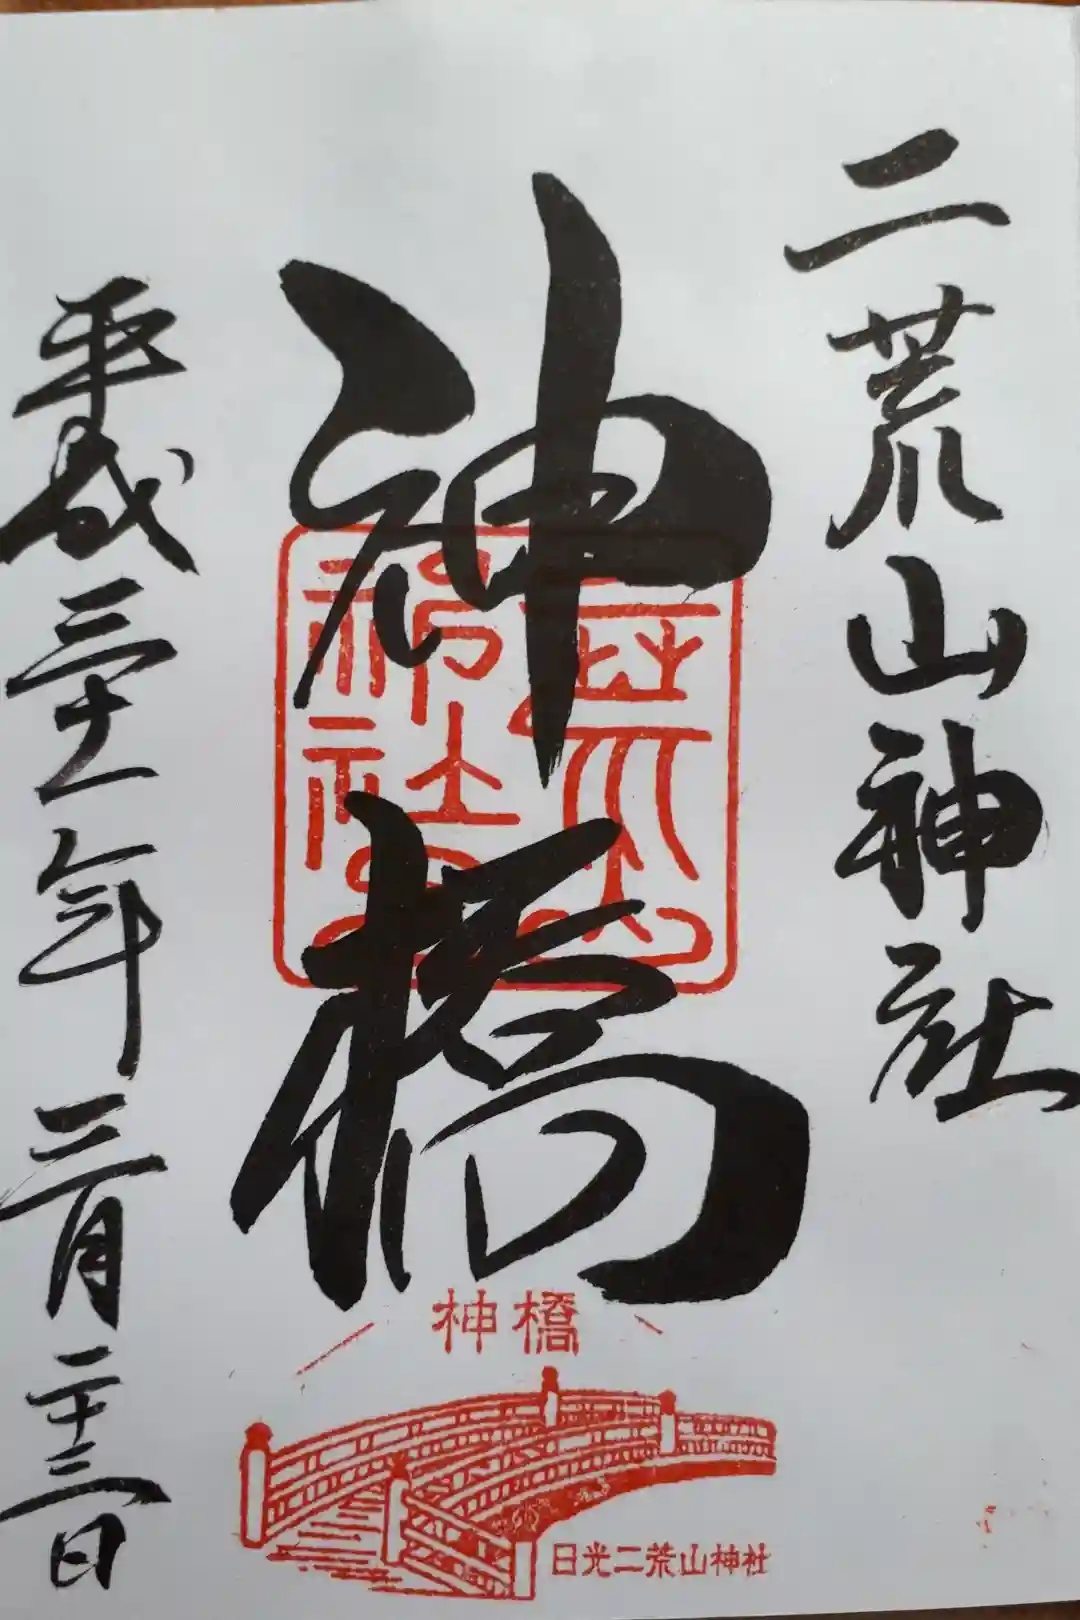 二荒山神社
神橋
二荒山神社
平成三十一年三月二十三日
神橋
日光二荒山神社